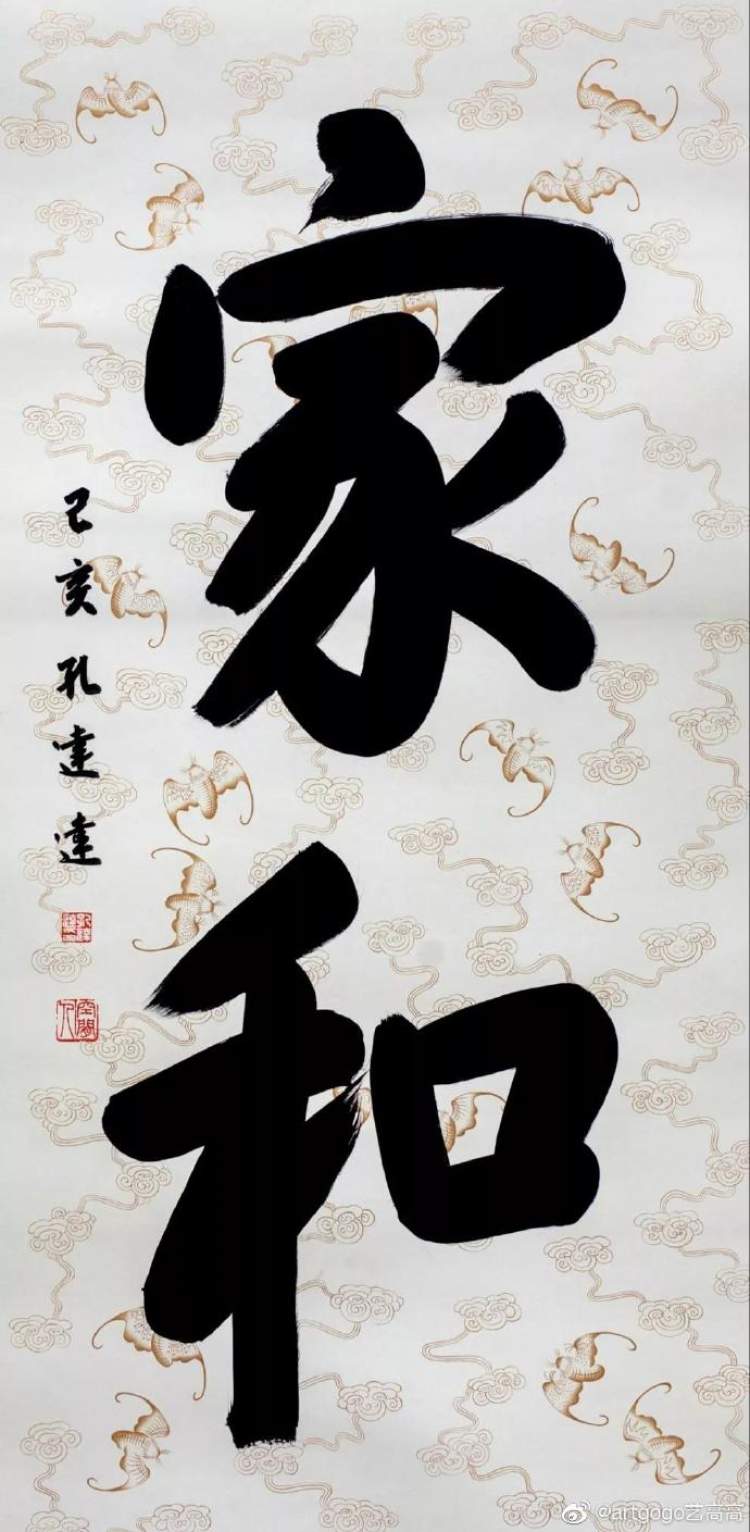 家和
己亥孔達達
@artgogo艺高高